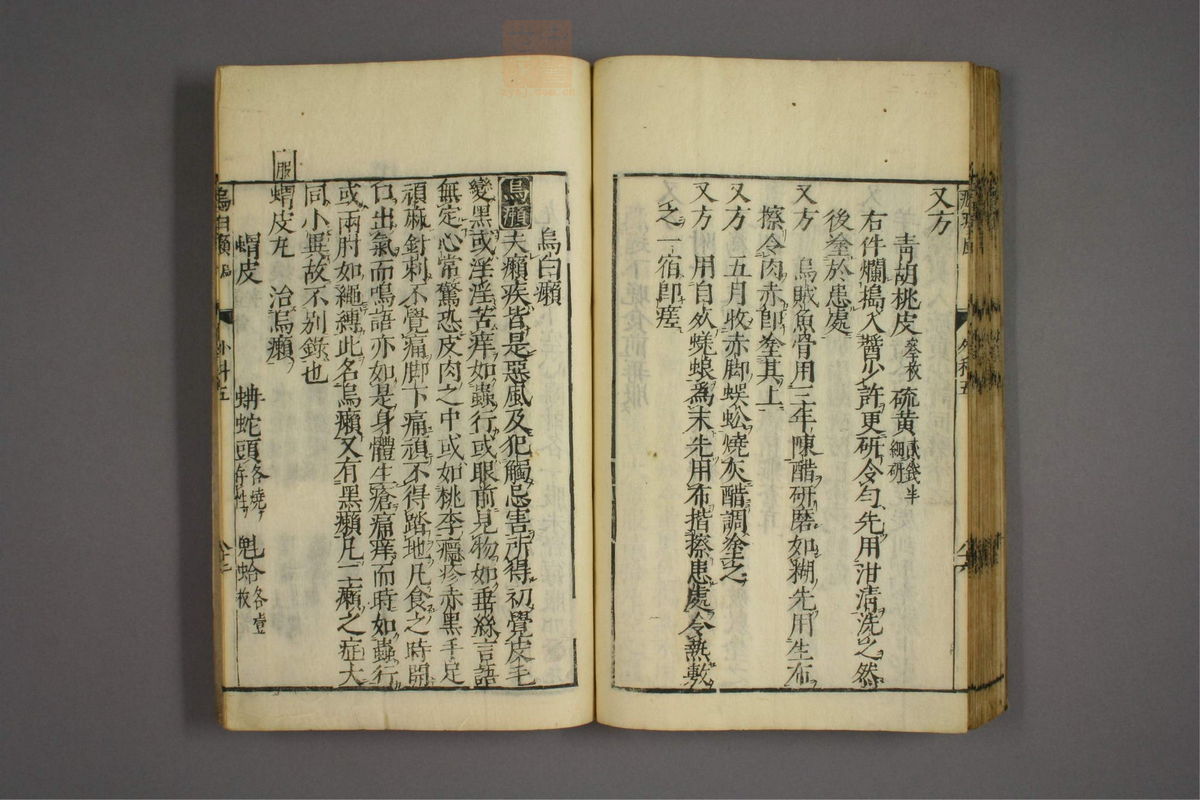 又方
青胡桃皮 叁枚 硫黄 貳錢半 細研
右件爛搗入醬少許更研令勻先用泔清洗之然
後塗於患處
又方 烏賊魚骨用三年陳醋研磨如糊先用生布
擦令肉赤即塗其上
又方 五月收赤脚蜈蚣燒灰醋調塗之
又方 用自死蜣蜋爲末先用布揩擦患處令熱敷
之一宿即瘥
烏白癩
烏癩 夫癩疾皆是惡風及犯觸忌害所得初覺皮毛
變黑或淫淫苦痒如蟲行或眼前見物如垂絲言語
無定心常驚恐皮肉之中或如桃李癮疹赤黑手足
頑麻針刺不覺痛脚下痛頑不得踏地凡食之時開
口出氣而鳴語亦如是身體生瘡痛痒而時如蟲行
或兩肘如繩縛此名烏癩又有黑癩凡二癩之症大
同小異故不别錄也
服 蝟皮丸 治烏癩
蝟皮 蚺蛇頭 各燒存性 魁蛤 各壹枚
烏白癩 外科五